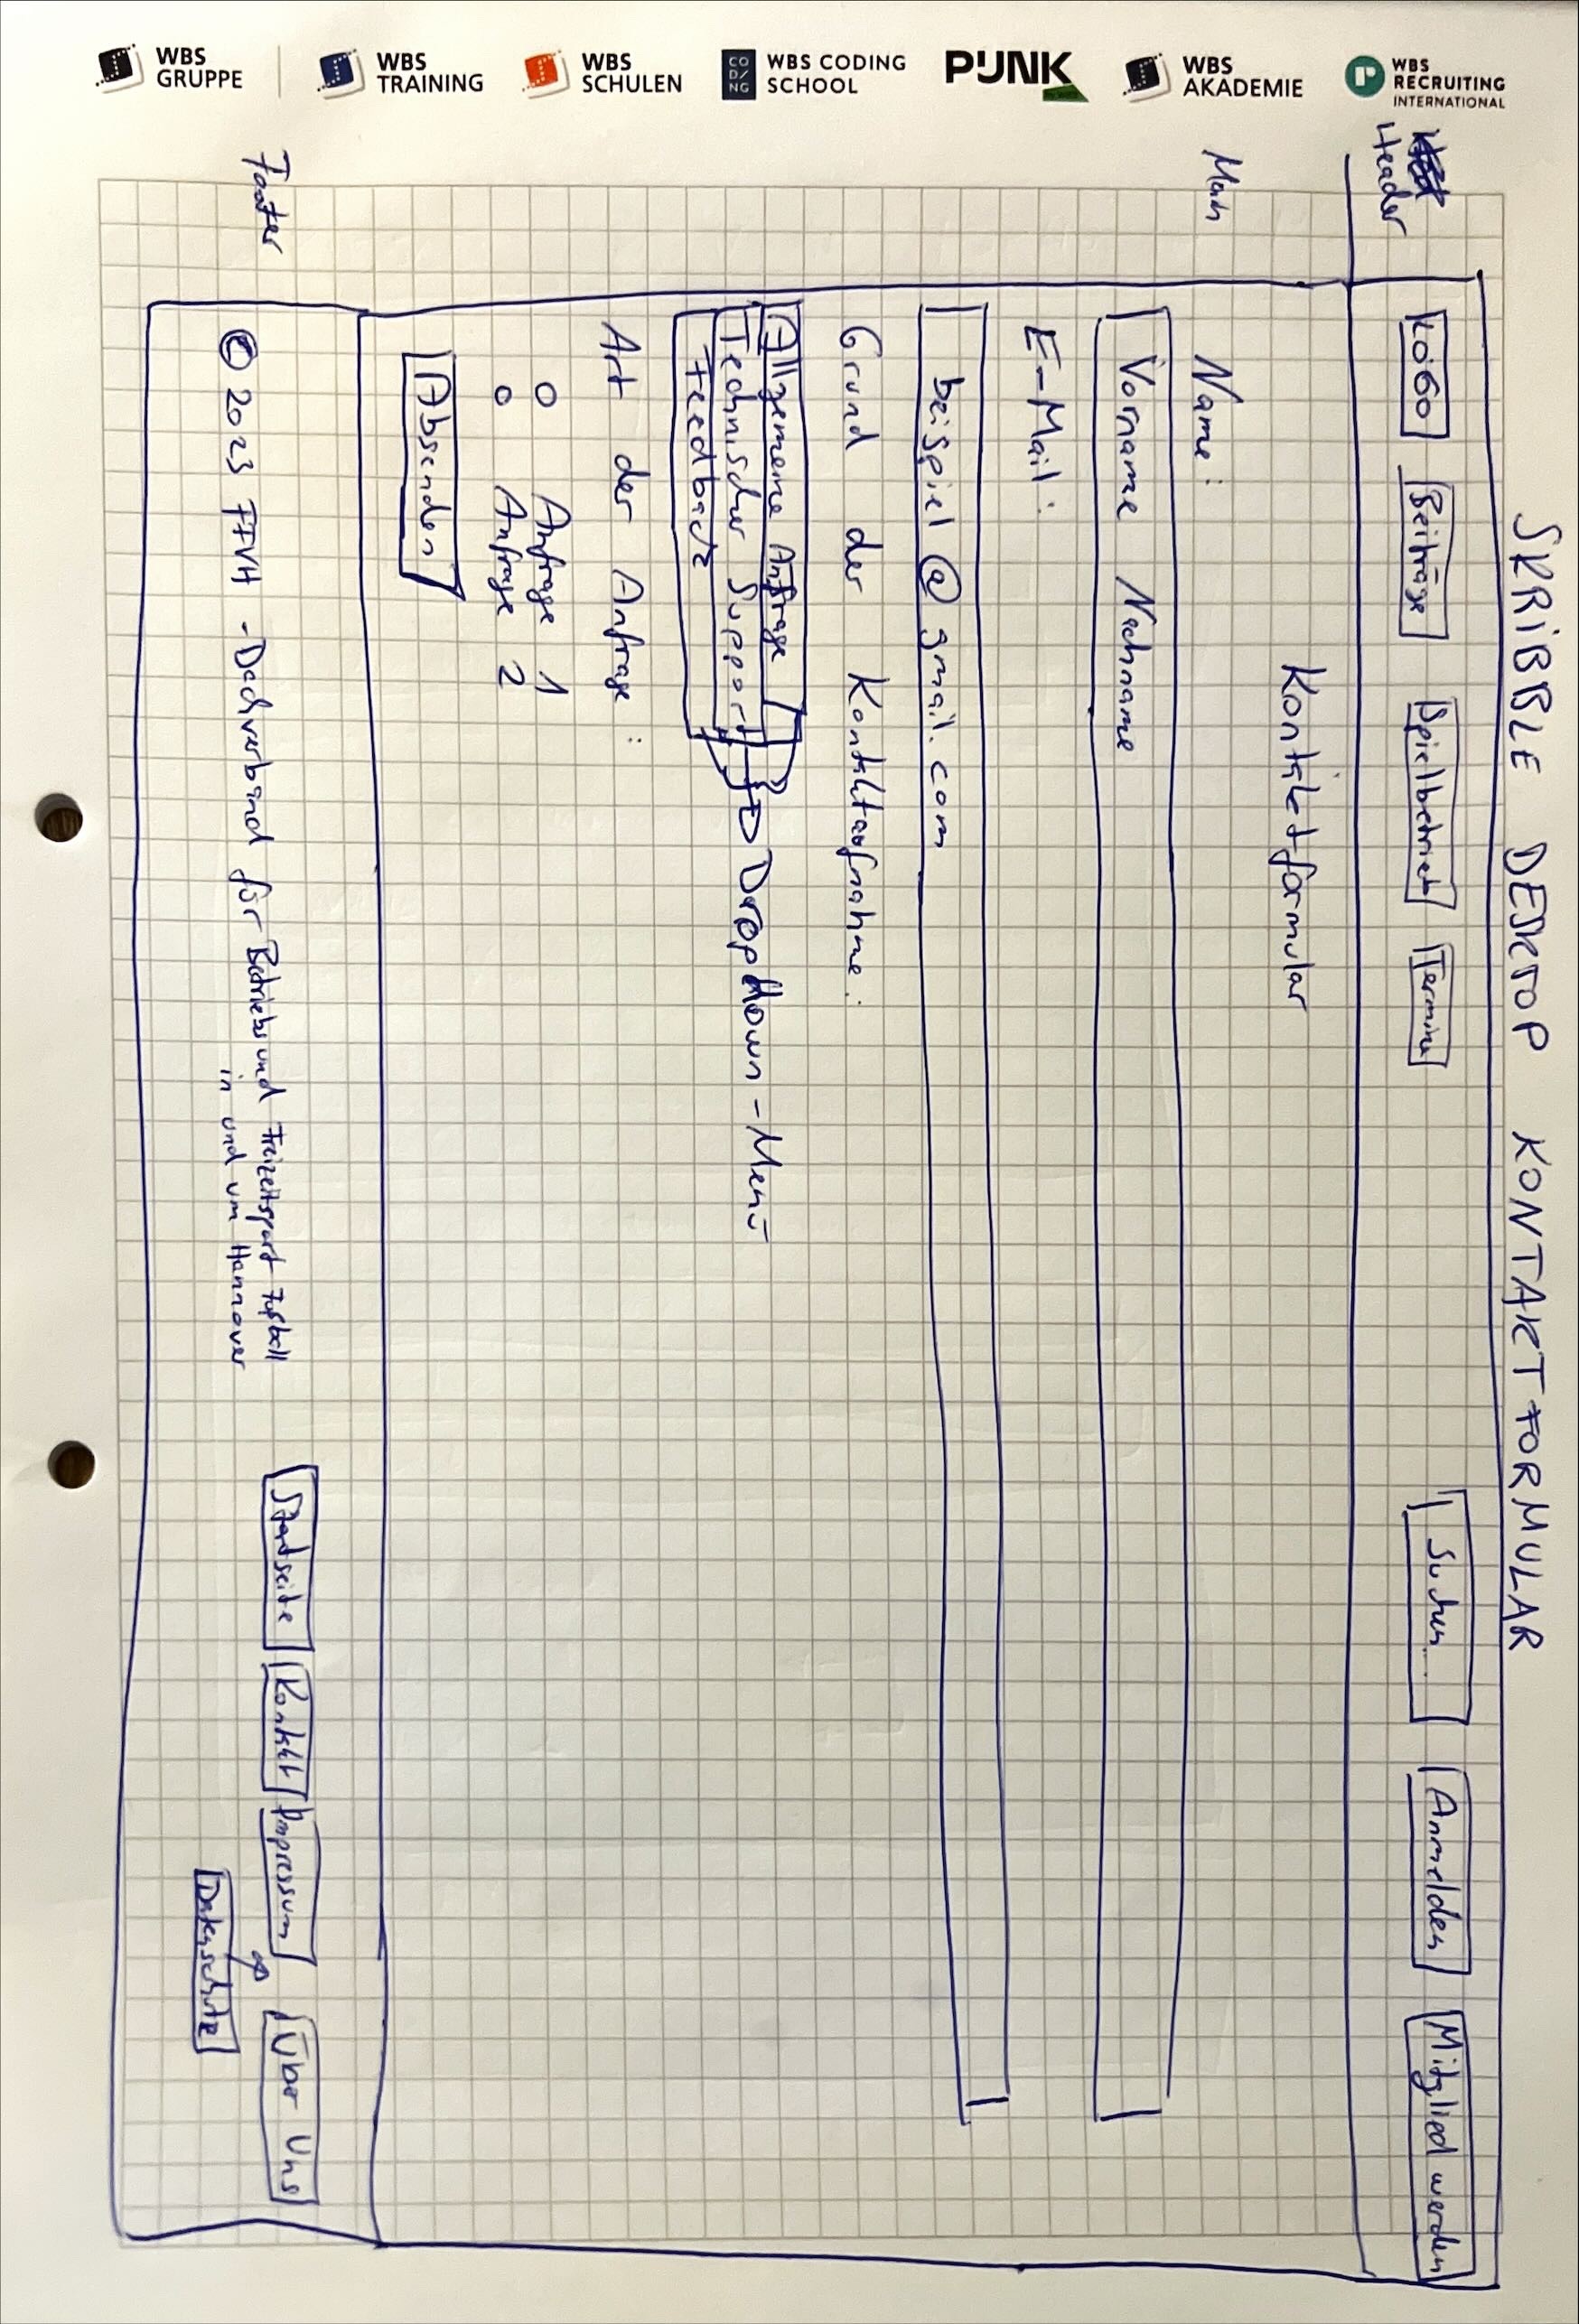 SKRIBBLE DESKTOP KONTAKTFORMULAR
Header
LOGO Beiträge Spielbetrieb Termine Suchen... Anmelden Mitglied werden
Kontaktformular
Main
Name:
Vorname Nachname
E-Mail:
beispiel @ gmail.com
Grund der Kontaktaufnahme:
Allgemeine Anfrage
Technischer Support
Feedback
DropDown-Menü
Art der Anfrage:
Anfrage 1
Anfrage 2
Absenden
Footer
© 2023 FFVH - Dachverband für Betriebs und Freizeitsport Fußball
in und um Hannover
Startseite Kontakt Impressum Über Uns
Datenschutz
WBS RECRUITING
INTERNATIONAL
WBS
AKADEMIE
PUNK
WBS CODING
SCHOOL
CO
DI/
NG
WBS
SCHULEN
WBS
TRAINING
WBS
GRUPPE